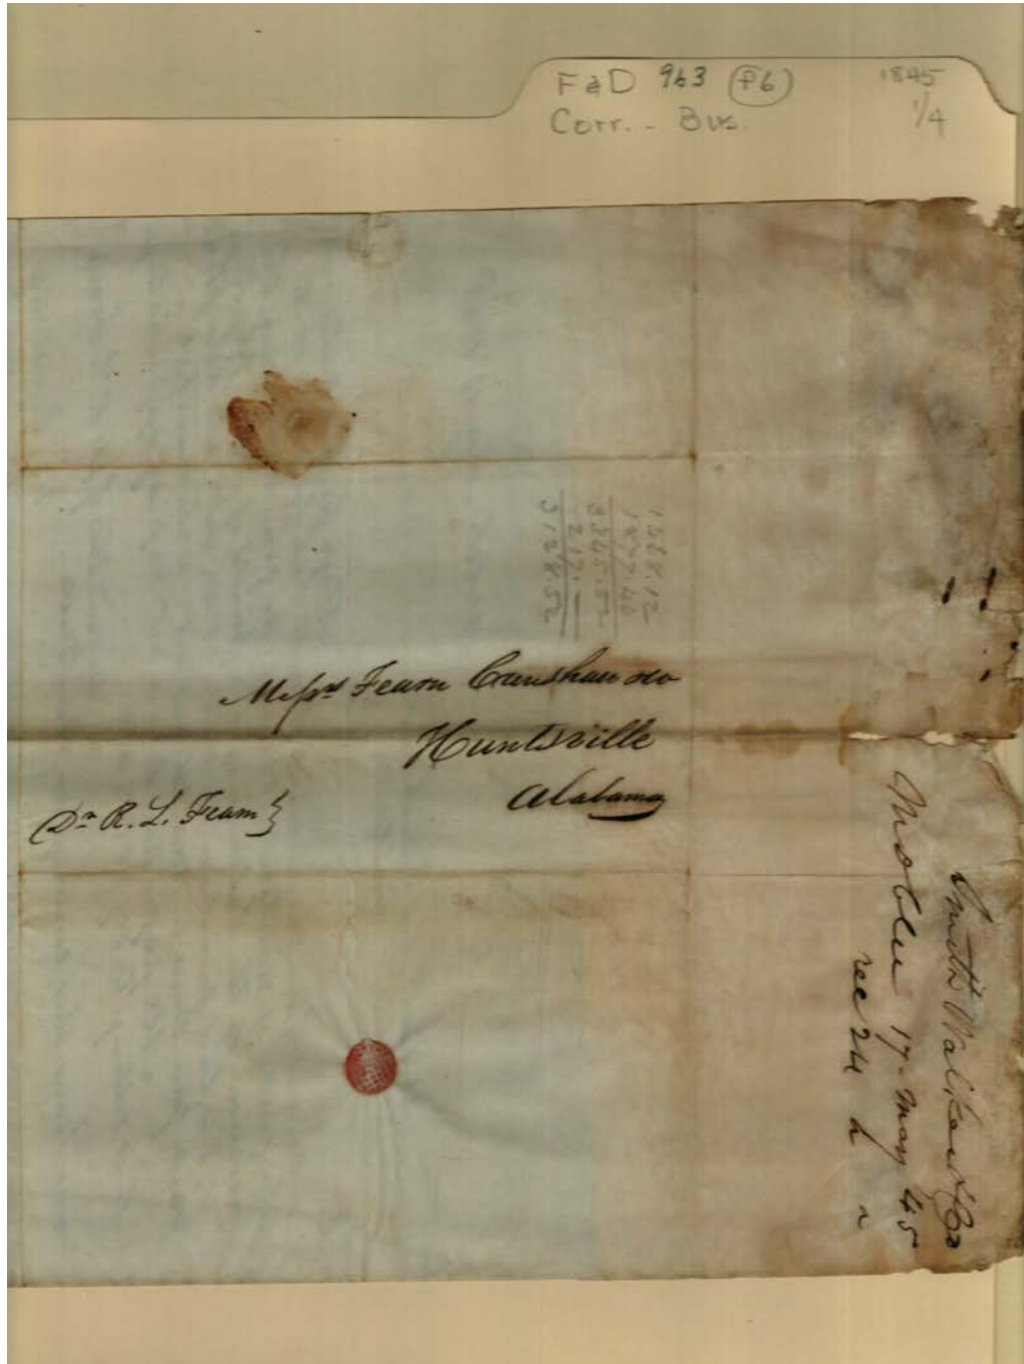 F&D 963 (P6) 1845
Corr. - Bus. 1/4
1468.12
1877.40
3345.52
217.—
3128.52
Messrs Fearn Crenshaw & Co
Huntsville
Alabama
Dr R. L. Fearn}
Smith Walker & Co
Mobile 17 May 45
rec 24